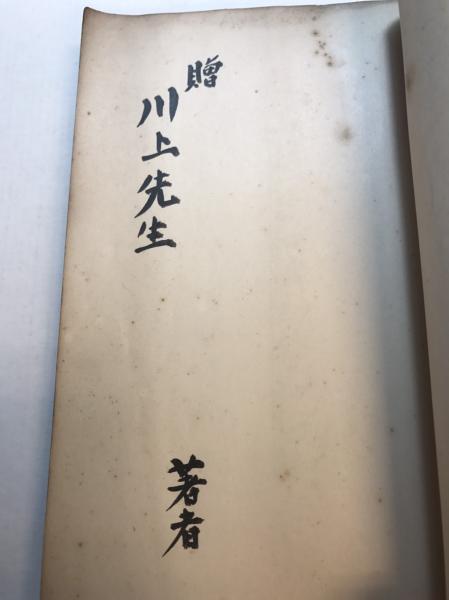 贈
川上先生
著者